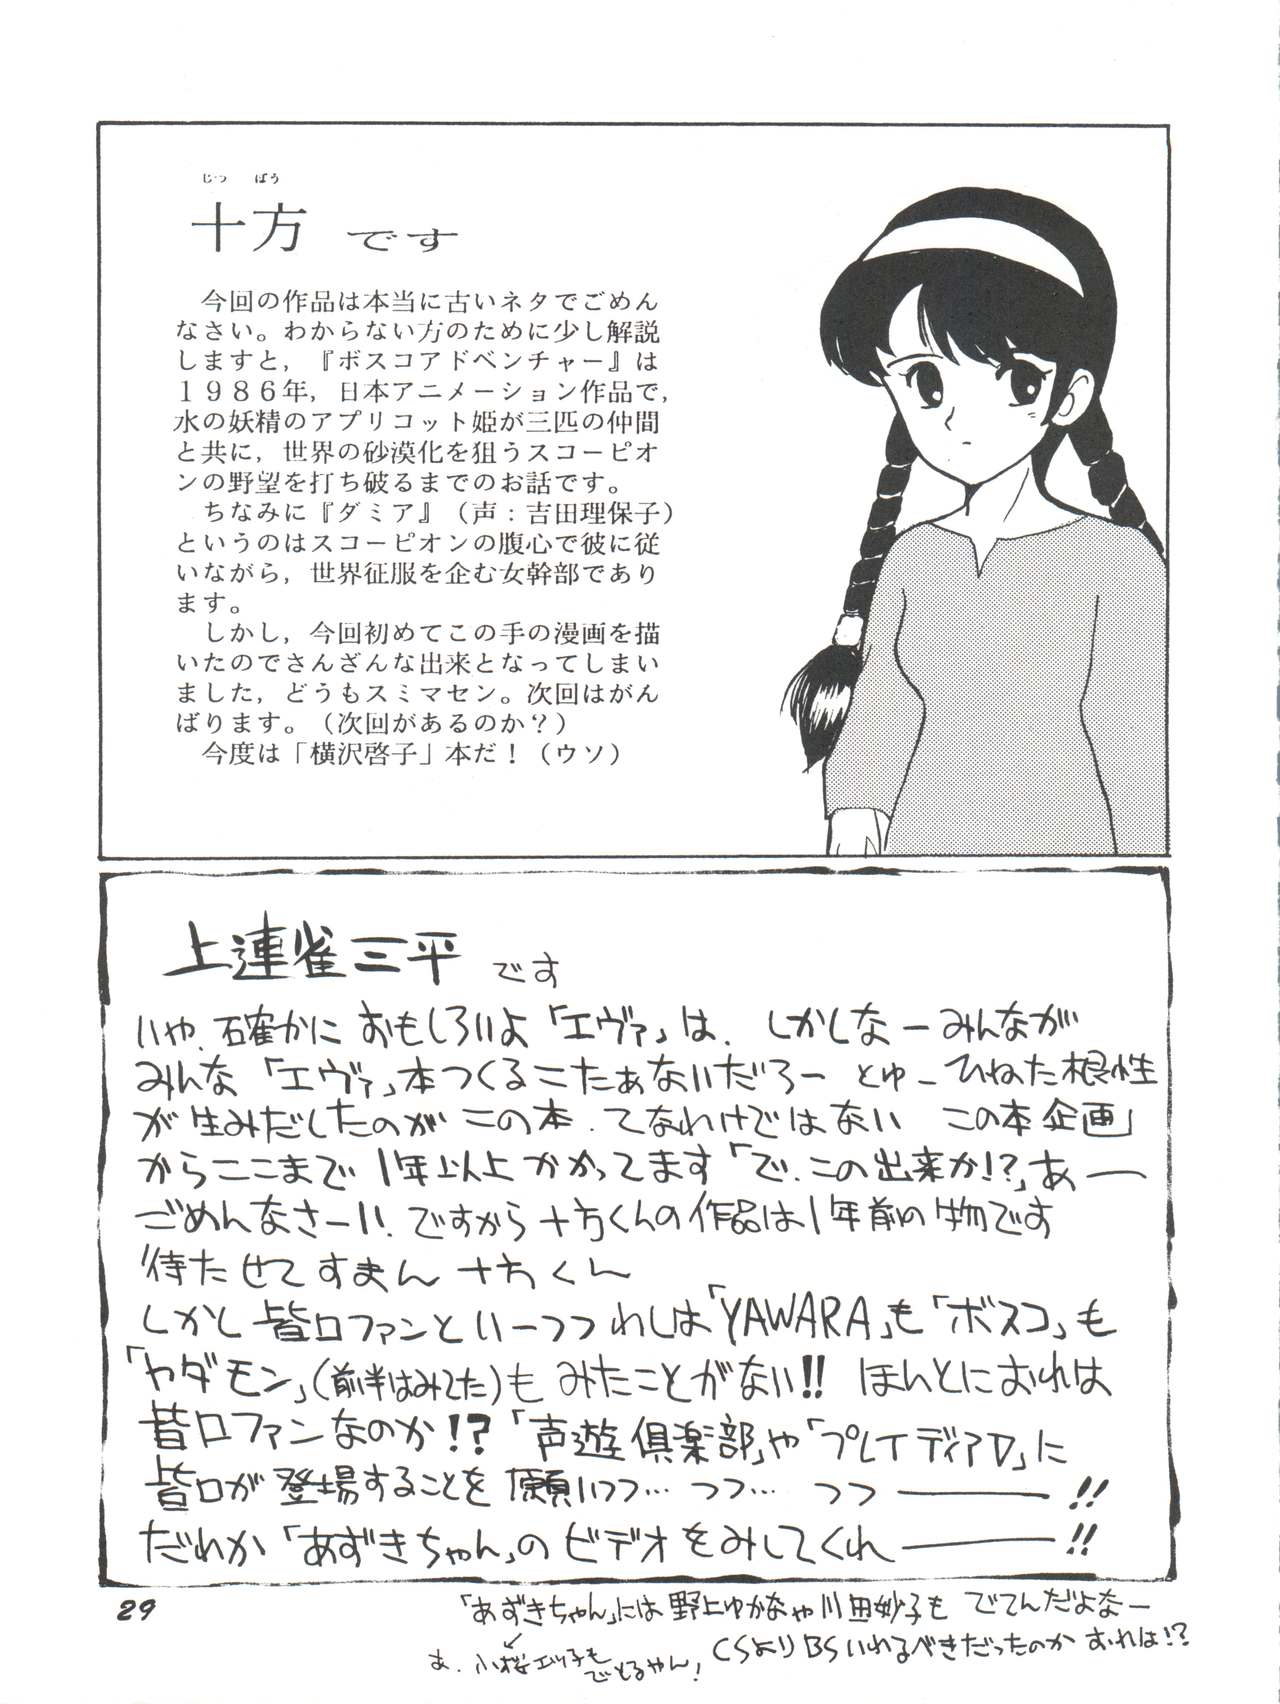 じっ ぽう
十方 です
今回の作品は本当に古いネタでごめん
なさい。わからない方のために少し解説
しますと，『ボスコアドベンチャー』は
１９８６年，日本アニメーション作品で，
水の妖精のアプリコット姫が三匹の仲間
と共に，世界の砂漠化を狙うスコーピオ
ンの野望を打ち破るまでのお話です。
ちなみに『ダミア』（声：吉田理保子）
というのはスコーピオンの腹心で彼に従
いながら，世界征服を企む女幹部であり
ます。
しかし，今回初めてこの手の漫画を描
いたのでさんざんな出来となってしまい
ました，どうもスミマセン。次回はがん
ばります。（次回があるのか？）
今度は「横沢啓子」本だ！（ウソ）
上連雀三平 です
いや、確かにおもしろいよ「エヴァ」は、しかしなーみんなが
みんな「エヴァ」本つくるこたぁないだろー とゅーひねた根性
が生みだしたのがこの本、てなわけではない この本企画」
からここまで1年以上かかってます「で、この出来か!?」あー
ごめんなさーい！ですから十方くんの作品は1年前の物です
待たせてすまん 十方くん
しかし皆口ファンといーつつわしは「YAWARA」も「ボスコ」も
「ヤダモン」(前半はみてた)も みたことがない!! ほんとにおれは
皆口ファンなのか!?「声遊倶楽部」や「プレイディアD」に
皆口が登場することを願いつつ… つつ… つつ――!!
だれか「あずきちゃん」のビデオをみしてくれ――!!
29
「あずきちゃん」には野上ゆかなや川田妙子も でてんだよなー
あ、小桜エツ子も
でとるやん！
CSよりBSいれるべきだったのか おれは!?